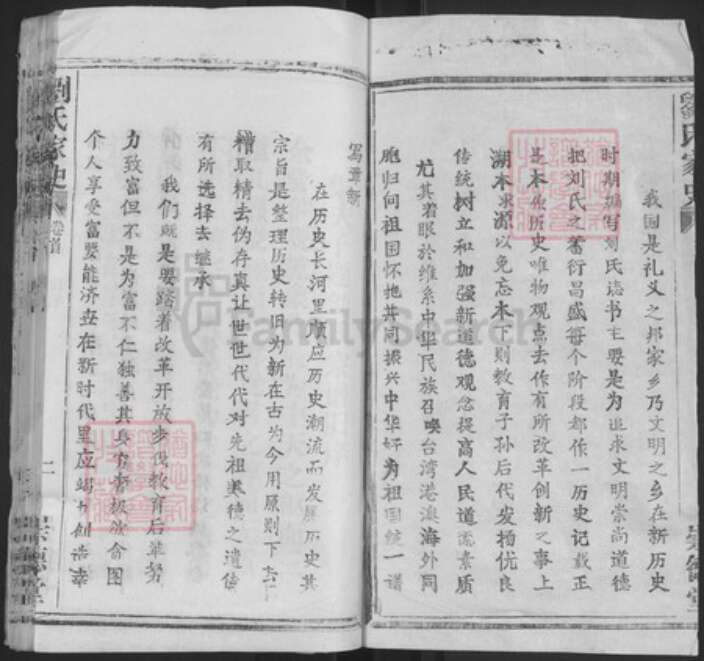 我国是礼义之邦家乡乃文明之乡在新历史
时期编写刘氏谱书主要是为追求文明崇尚道德
把刘氏之蕃衍昌盛每个阶段都作一历史记载正
是本依历史唯物观点去作有所改革创新之事上
溯木求源以免忘本下则教育子孙后代发扬优良
传统树立和加强新道德观念提高人民道德素质
尤其着眼於维系中华民族召唤台湾港澳海外同
胞归向祖国怀抱共同振兴中华好为祖国统一谱
写章新
在历史长河里顺应历史潮流而发展历史其
宗旨是整理历史转旧为新在古为今用原则下去
糟取精去伪存真让世世代代对先祖美德之遗传
有所选择去继承
我们既是要踏着改革开放步伐教育后辈努
力致富但不是为富不仁独善其身
个人享受富要能济在新时代里应竭力创造幸
劉氏家史
卷首
二
FamilySearch